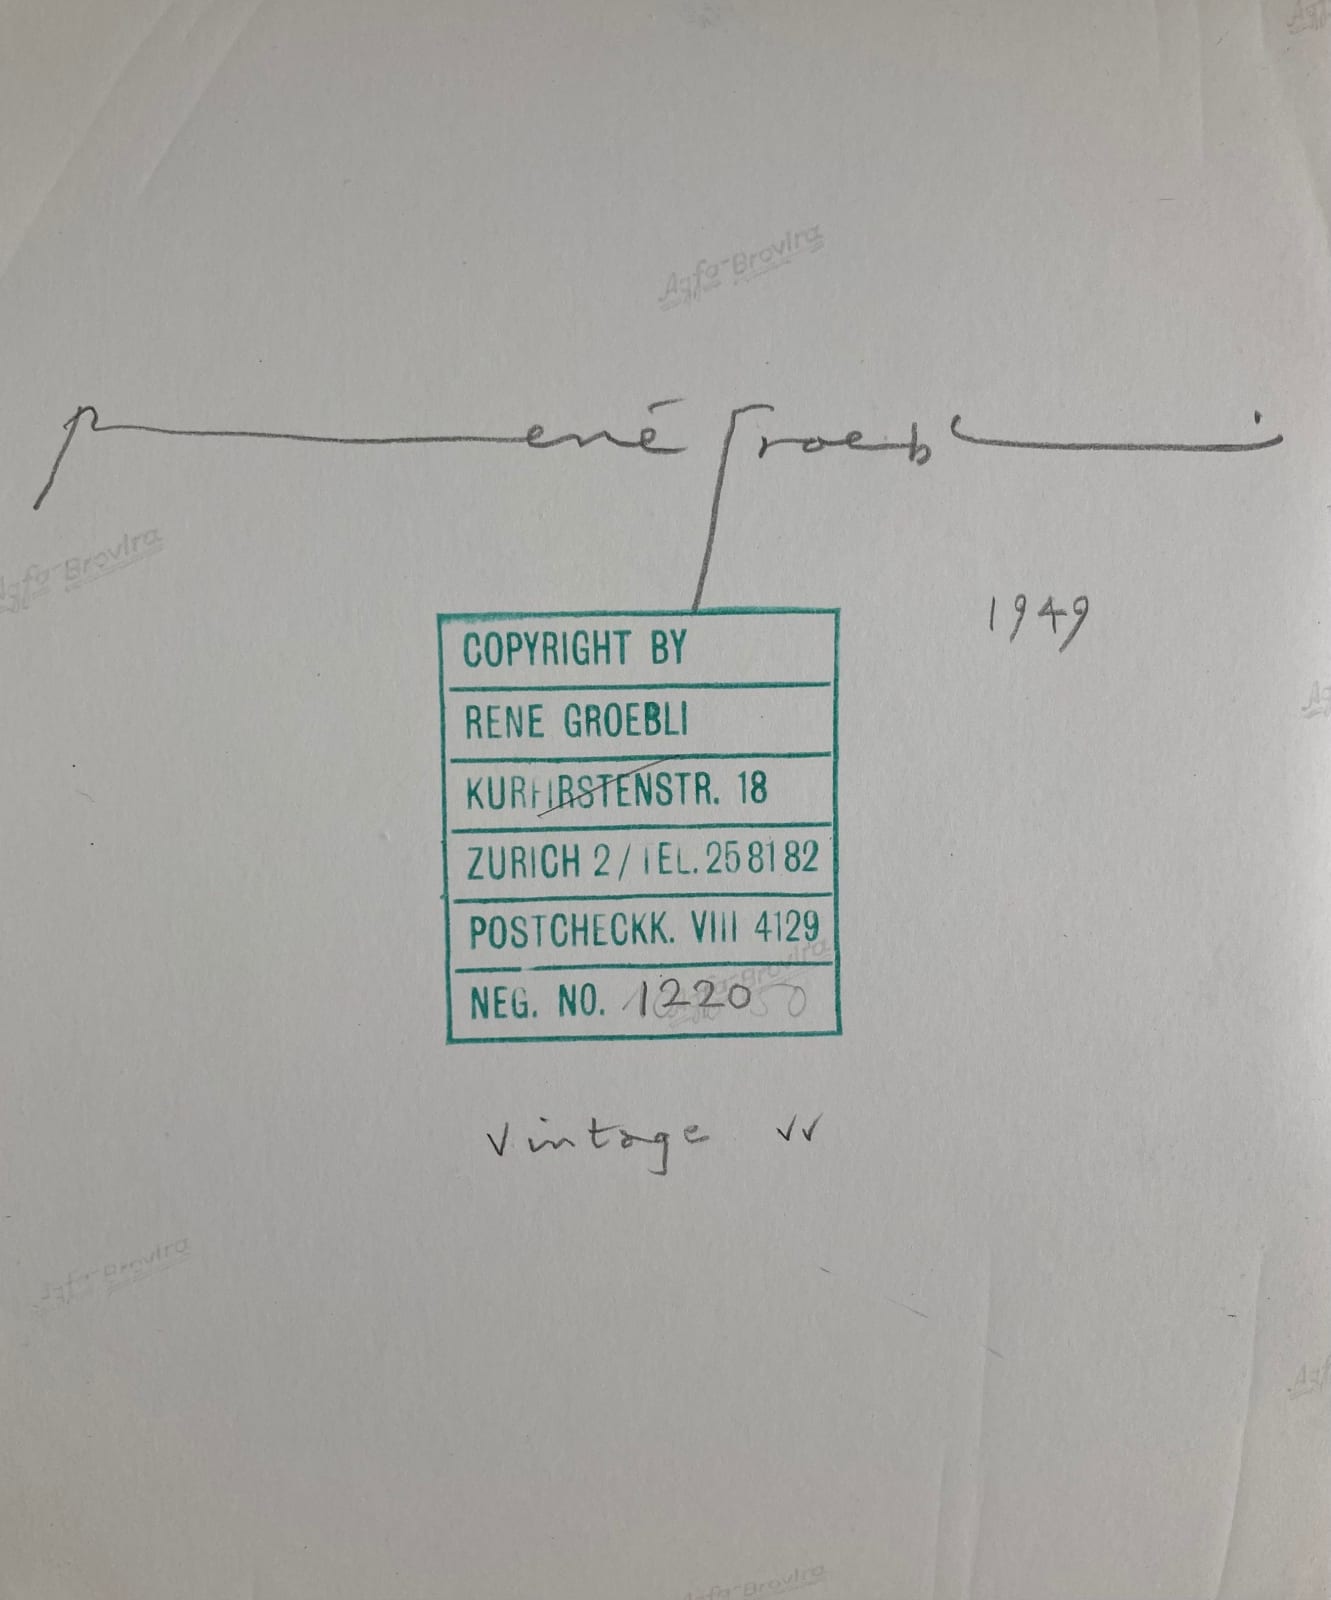 Agfa-Brovira
rené Groebli
Agfa-Brovira
1949
COPYRIGHT BY
RENE GROEBLI
KURFIRSTENSTR. 18
ZURICH 2 / TEL. 25 81 82
POSTCHECKK. VIII 4129
Agfa-Brovira
NEG. NO. 1220
vintage vv
Agfa-Brovira
Agfa-Brovira